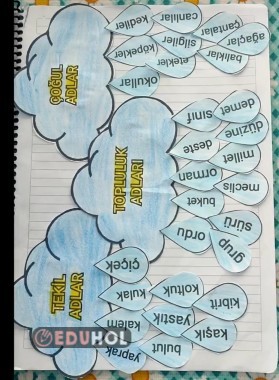 ÇOĞUL
ADLAR
kediler
camiler
ağaçlar
çantalar
silgiler
köpekler
etekler
balıklar
okullar
TOPLULUK
ADLARI
demet
sınıf
düzine
deste
millet
orman
meclis
buket
sürü
ordu
grup
TEKİL
ADLAR
çiçek
koltuk
kulak
kibrit
yastık
kalem
kaşık
bulut
yaprak
EDUHOL